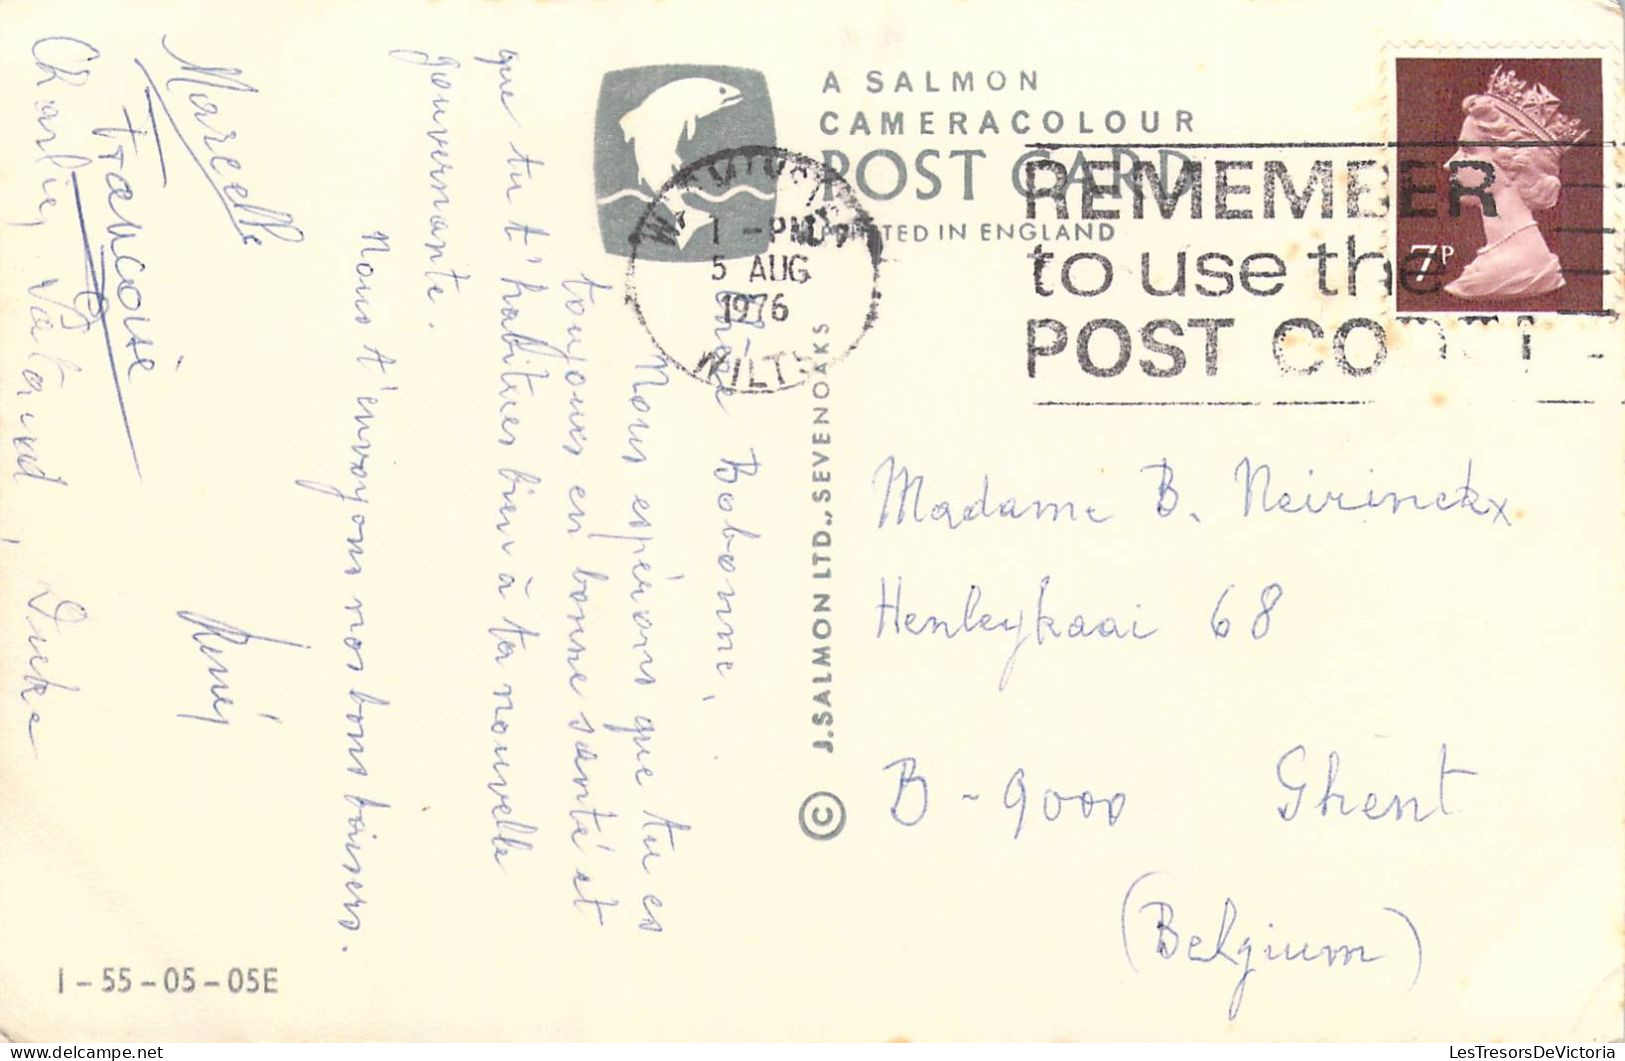 A SALMON
CAMERACOLOUR
POST CARD
PRINTED IN ENGLAND
© J. SALMON LTD., SEVENOAKS
1 - PM
5 AUG
1976
WILTS
REMEMBER
to use the
POST CODE
7P
Chère Bobonne,
Nous espérons que tu es
toujours en bonne santé et
que tu t'habitues bien à ta nouvelle
gouvernante.
Nous t'envoyons nos bons baisers.
Marcelle
Rémy
Françoise
Charley
Madame B. Neirinckx
Henleykaai 68
B - 9000 Ghent
(Belgium)
1 - 55 - 05 - 05E
LesTresorsDeVictoria